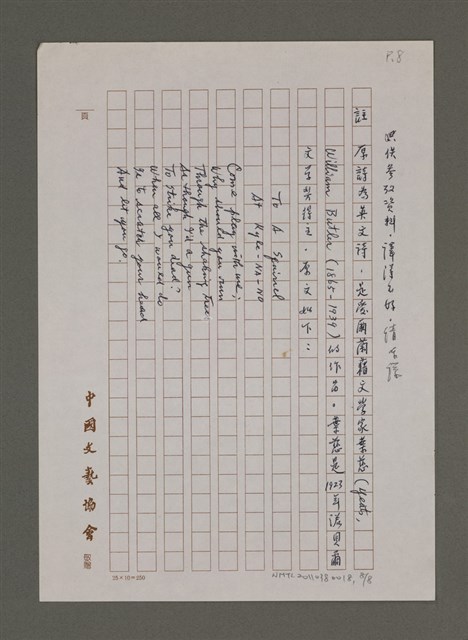 P.8
供供參考資料，譯得不好，請指孫
註 原詩為英文詩，是愛爾蘭籍文學家葉慈（Yeats,
William Butler (1865-1939) 的作品。葉慈是1923年諾貝爾
文學獎得主。原文如下：
To A Squirrel
At Kyle-NA-NO
Come play with me;
Why should you run
Through the shaking tree
As though I'd a gun
To strike you dead?
When all I would do
Is to scratch your head
And let you go.
中國文藝協會
25×10=250
NMTL20110980018, 8/8